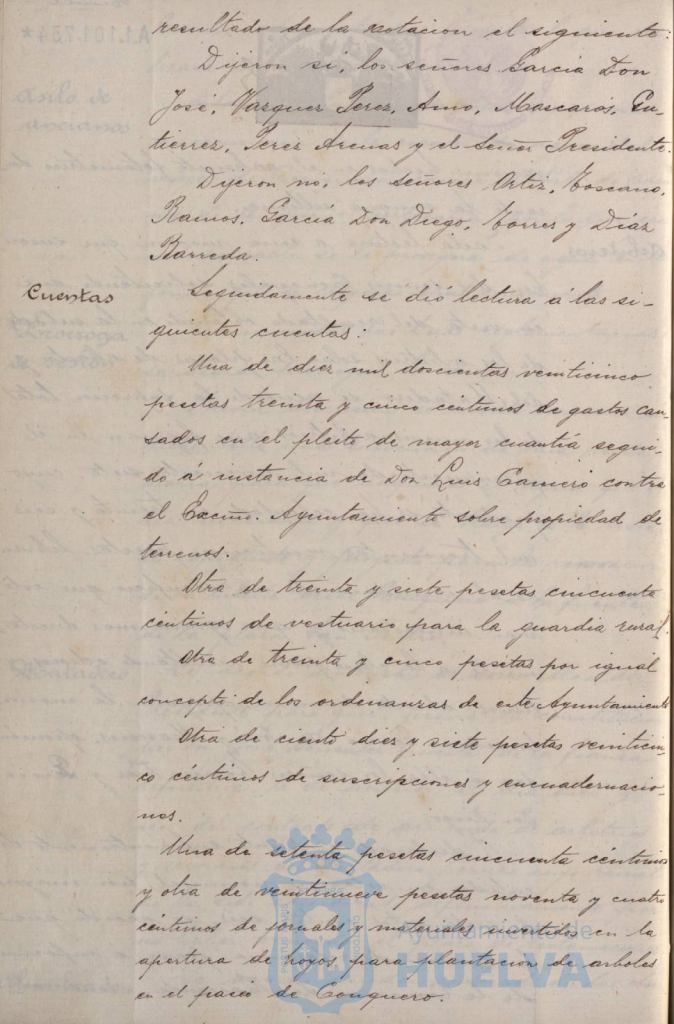 resultado de la votacion el siguiente:
Dijeron si, los señores Garcia Don
José, Vazquez Perez, Amo, Mascarós, Gu-
tierrez, Perez Arenas y el Señor Presidente.
Dijeron no, los señores Ortiz, Toscano,
Ramos, García Don Diego, Torres y Diaz
Barreda.
Cuentas
Seguidamente se dió lectura á las si-
guientes cuentas:
Una de diez mil doscientas veinticinco
pesetas treinta y cinco céntimos de gastos cau-
sados en el pleito de mayor cuantía segui-
do á instancia de Don Luis Camero contra
el Excmo. Ayuntamiento sobre propiedad de
terrenos.
Otra de treinta y siete pesetas cincuenta
céntimos de vestuario para la guardia rural.
Otra de treinta y cinco pesetas por igual
concepto de los ordenanzas de este Ayuntamiento
Otra de ciento diez y siete pesetas veinticin-
co céntimos de suscripciones y encuadernacio-
nes.
Una de setenta pesetas cincuenta céntimos
y otra de veintinueve pesetas noventa y cuatro
céntimos de jornales y materiales invertidos en la
apertura de hoyos para plantacion de arboles
en el paseo de Conquero.
Ayuntamiento de
HUELVA